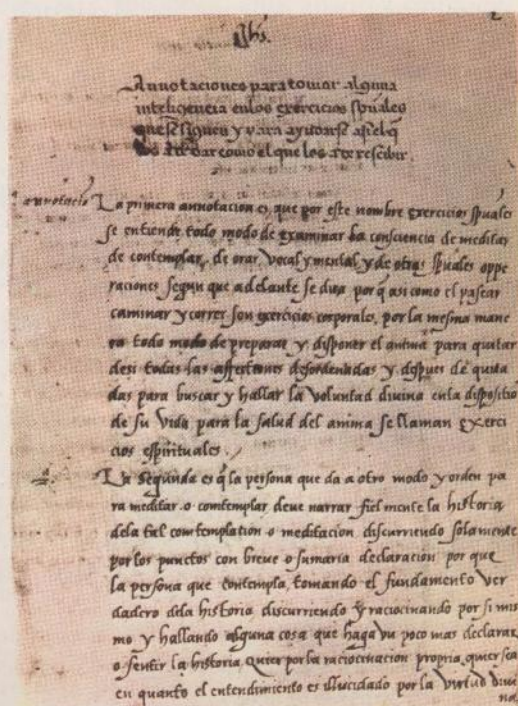 2
Jhs.
Annotaciones para tomar alguna
inteligencia enlos exercicios spũales
que se siguen y para ayudarse asi el q̃
los a de dar como el que los a de rescibir.
annotaciõ La primera annotacion es que por este nombre exercicios spũales
se entiende todo modo de examinar la consciencia de meditar
de contemplar, de orar vocal y mental, y de otras spũales oppe
raciones segun que adelante se dira, porq̃ asi como el pasear
caminar y correr son exercicios corporales, por la mesma mane
ra todo modo de preparar y disponer el anima para quitar
desi todas las affectiones desordenadas y despues de quita
das para buscar y hallar la voluntad divina enla dispositiõ
de su vida para la salud del anima se llaman exerci
cios espirituales.
La segunda es q̃ la persona que da a otro modo y orden pa
ra meditar o contemplar, deue narrar fielmente la historia
dela tal contemplation o meditacion discurriendo solamente
por los punctos con breue o sumaria declaracion por que
la persona que contempla, tomando el fundamento ver
dadero dela historia discurriendo y raciocinando por si mis
mo y hallando alguna cosa que haga vn poco mas declarar
o sentir la historia, quier por la raciocinacion propria, quier sea
en quanto el entendimiento es illucidado por la virtud diui
na,